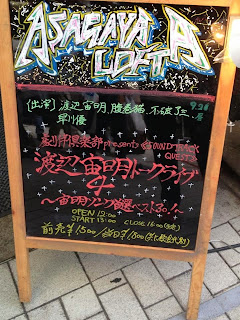 ASAGAYA
LOFT A
(出演) 渡辺宙明、腹巻猫、不破了三
早川優
9.28
劇伴倶楽部 presents SOUNDTRACK
QUEST
渡辺宙明トークライブ
4
〜宙明ソング総選ベスト30!〜
OPEN 12:00
START 13:00
CLOSE 16:00(予定)
前売¥1,500/当日¥1,800(共に飲食代別)